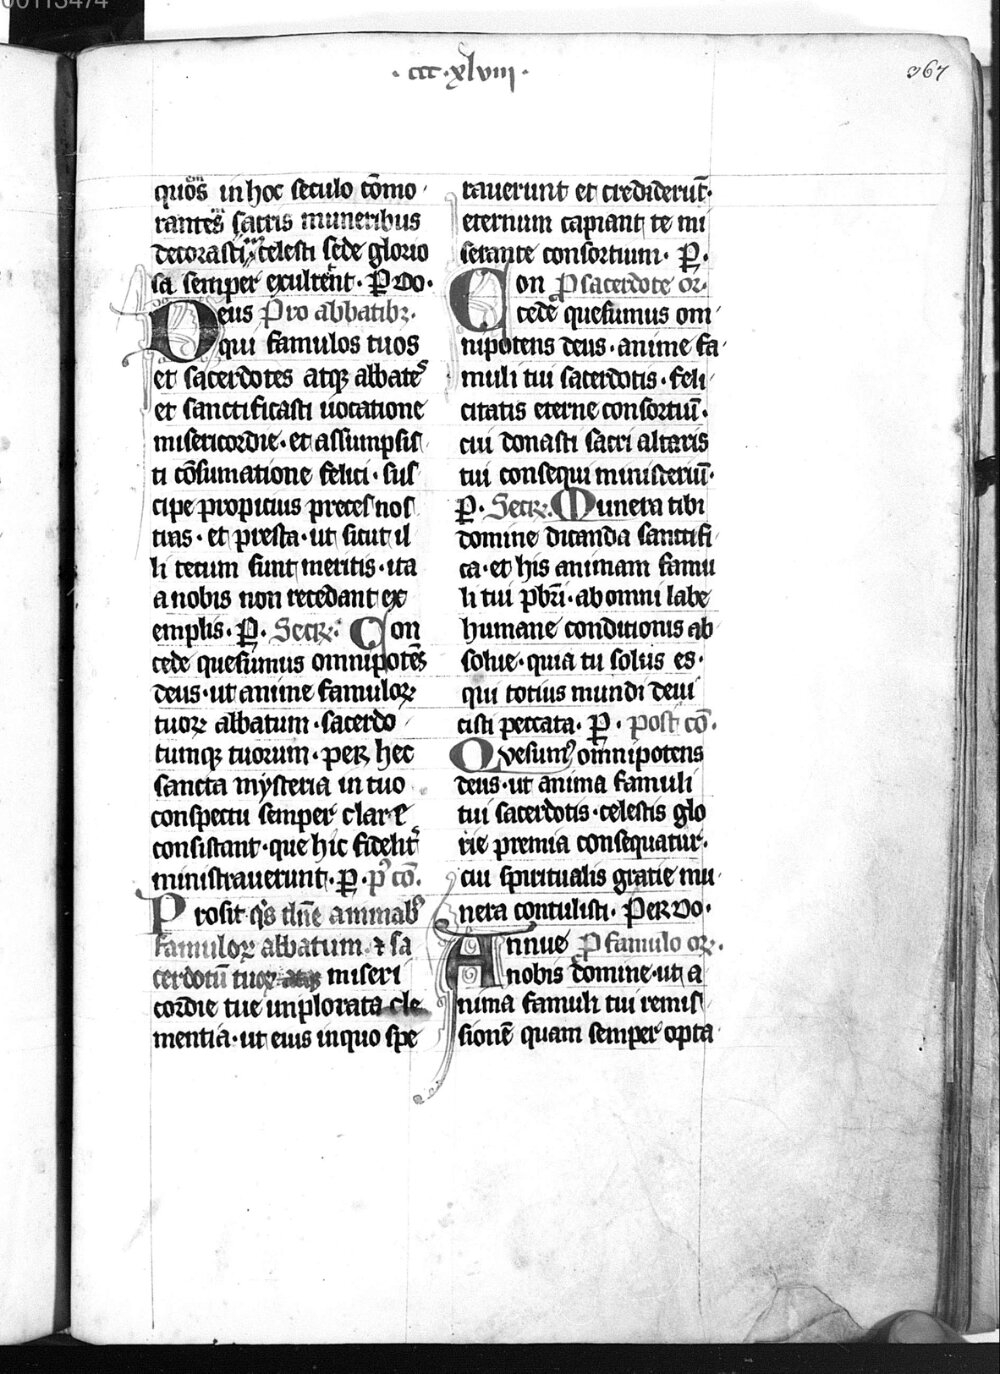 · ccc · xlviii ·
367
quos in hoc seculo cōmo
rantes sacris muneribus
decorasti celesti sede glorio
sa semper exultent · P̲ Do ·
Deus Pro abbatibꝫ ·
qui famulos tuos
et sacerdotes atqꝫ abbates
et sanctificasti uocatione
misericordie · et assumpsis
ti cōsumatione felici · sus
cipe propicius preces nos
tras · et presta · ut sicut il
li tecum sunt meritis · ita
a nobis non recedant ex
emplis · P̲ · Secꝛ · Con
cede quesumus omnipotēs
deus · ut anime famuloꝝ
tuoꝝ abbatum · sacerdo
tumqꝫ tuorum · per hec
sancta mysteria in tuo
conspectu semper clare
consistant · que hic fidelit̾
ministrauerunt · P̲ · p̾ cō ·
Prosit q̄s dn̄e animabꝰ
famuloꝝ abbatum ⁊ sa
cerdotū tuoꝝ miseri
cordie tue implorata cle
mentia · ut eius in quo spe
rauerunt et crediderūt ·
eternum capiant te mi
serante consortium · P̲ ·
Con P̲ sacerdote or ·
cede quesumus om
nipotens deus · anime fa
muli tui sacerdotis · feli
citatis eterne consortiū ·
cui donasti sacri altaris
tui consequi ministeriū ·
P̲ · Secꝛ · Munera tibi
domine dicanda sanctifi
ca · et his animam famu
li tui pbr̄i · ab omni labe
humane conditionis ab
solue · quia tu solus es ·
qui totius mundi deui
cisti peccata · P̲ · post cō ·
Quesumꝰ omnipotens
deus · ut anima famuli
tui sacerdotis · celestis glo
rie premia consequatur ·
cui spiritualis gratie mu
nera contulisti · Per Do ·
Annue P̲ famulo or ·
nobis domine · ut a
nima famuli tui remis
sionē quam semper opta